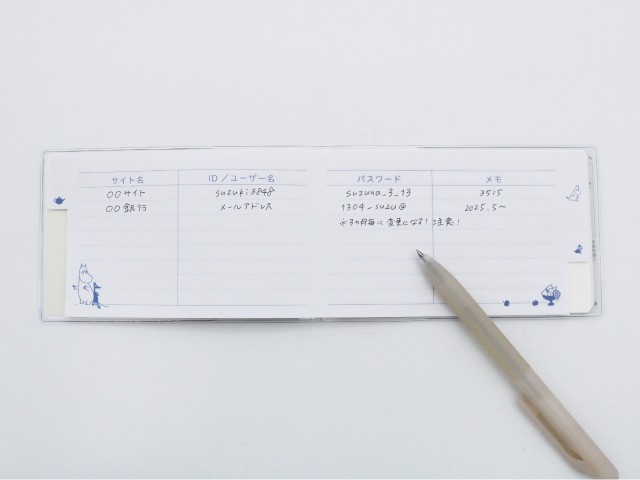 サイト名 ID／ユーザー名 パスワード メモ
〇〇サイト suzuki3848 suzuna_3_13 3515
〇〇銀行 メールアドレス 1304_suzu@ 2025.5〜
※3カ月毎に変更になる！注意！